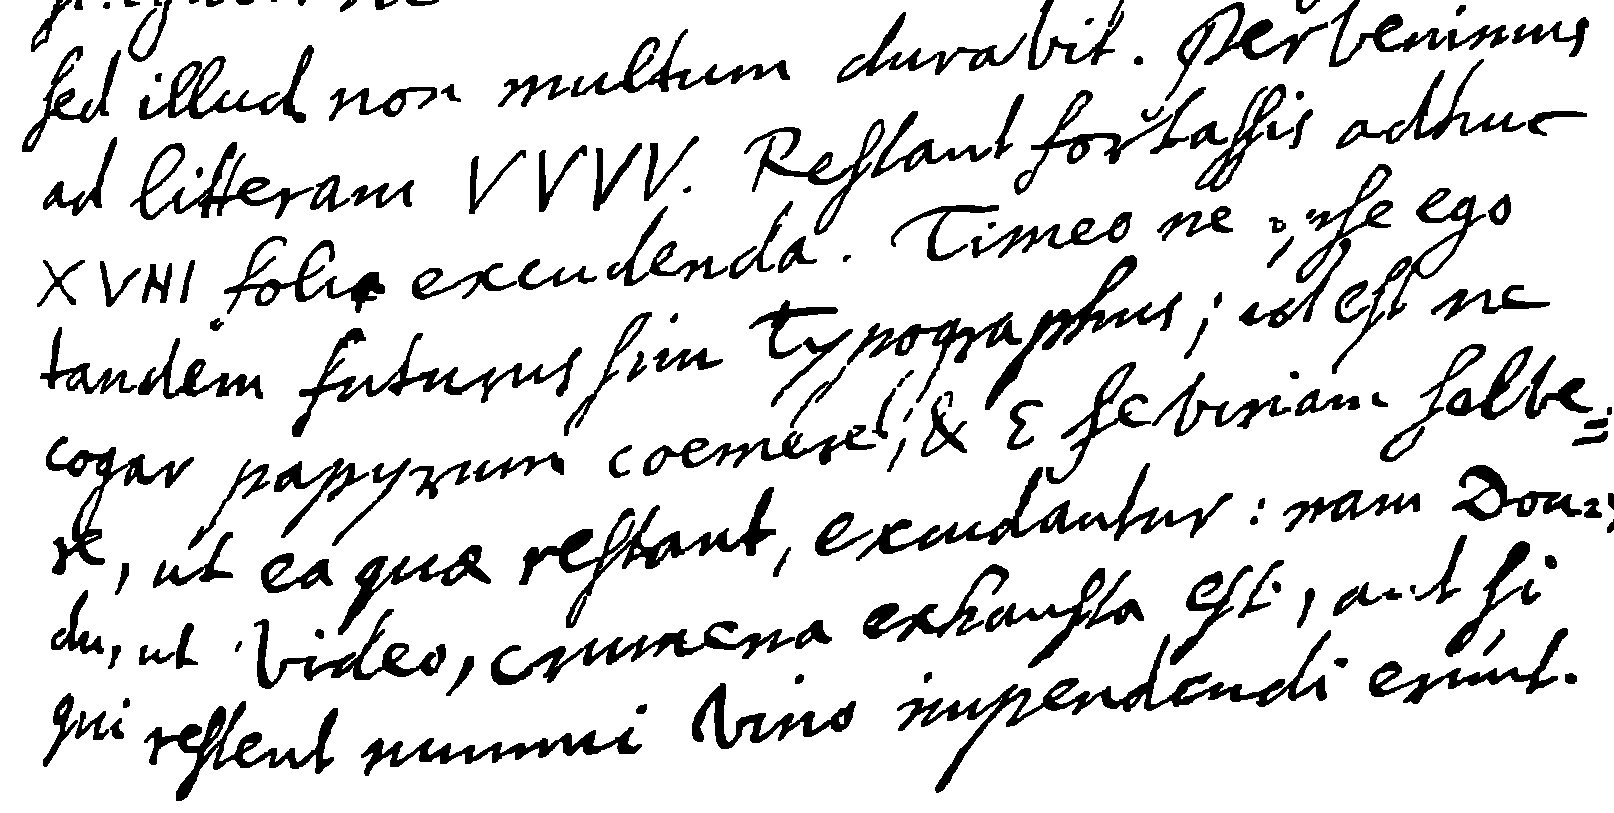 sed illud non multum durabit. Pervenimus
ad litteram VVVV. Restant fortassis adhuc
XVIII folia excudenda. Timeo ne ipse ego
tandem futurus sim typographus; id est ne
cogar papyrum coemere, & Σ feviriam solve=
re, ut ea quæ restant, excudantur: nam Dou=
du, ut video, crumena exhausta est, aut si
qui restent nummi vino impendendi erunt.